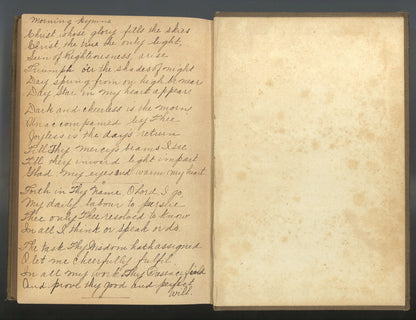 Morning Hymns
Christ whose glory fills the skies
Christ the true the only light,
Sun of Righteousness, arise
Triumph o'er the shades of night
Day spring from on high be near
Day Star in my heart appear
Dark and cheerless is the morn
Unaccompanied by Thee
Joyless is the day's return
Till Thy mercy's beams I see
Till they inward light impart
Glad my eyes and warm my heart
Forth in Thy Name, O Lord I go
My daily labour to pursue
Thee only Thee resolved to know
In all I think or speak or do.
The task Thy Wisdom hath assigned
O let me cheerfully fulfil
In all my works Thy Presence find
And prove thy good and perfect
will.